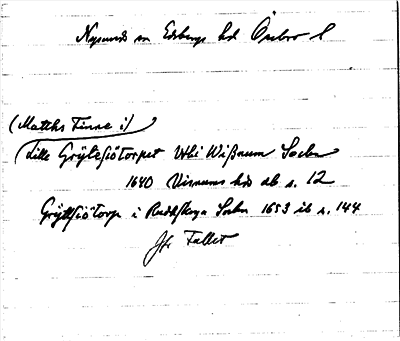 Nysunds sn Edsbergs hd Örebro l
(Matths Finne i)
Lille Gryttesiötorpet Utbi Wißnum Sochn
1640 Visnums hrs ab s. 12
Gryttsiötorp i Rudskoga Sochn 1653 ib s. 144
Jfr Fallet